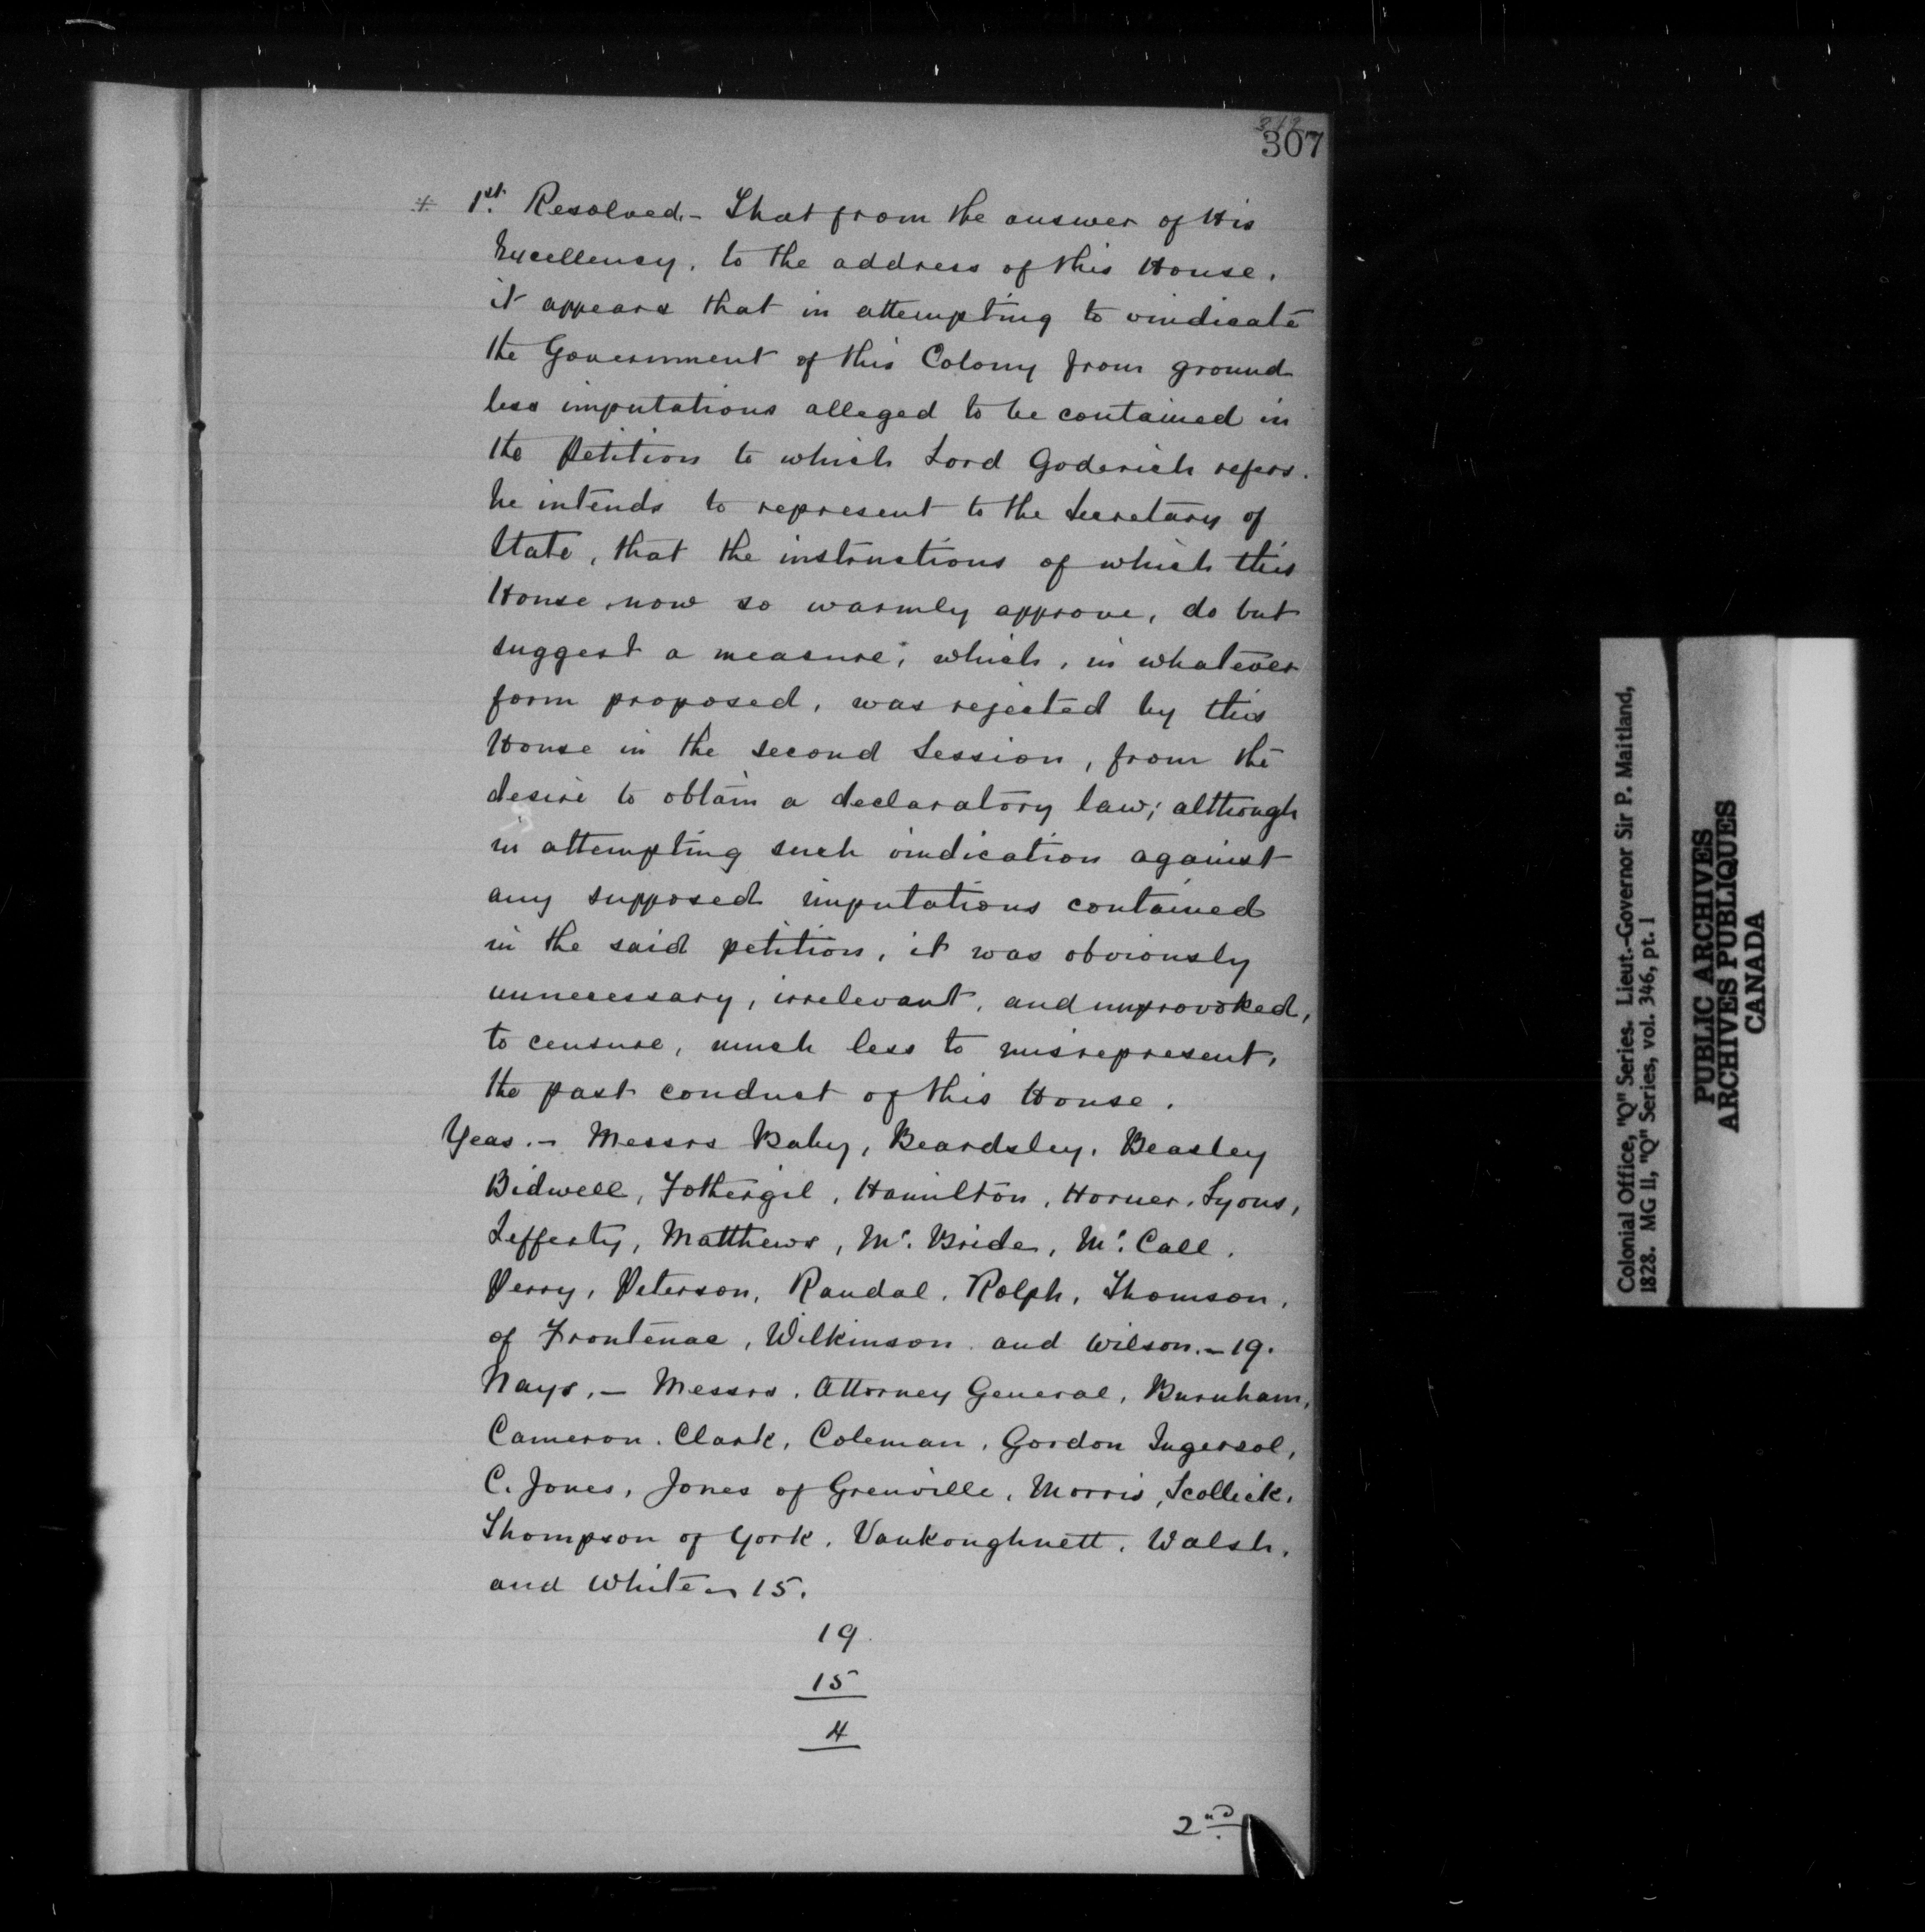 307
* 1st. Resolved,- That from the answer of His
Excellency, to the address of this House,
it appears that in attempting to vindicate
the Government of this Colony from ground
less imputations alleged to be contained in
the Petition to which Lord Goderich refers.
he intends to represent to the Secretary of
State, that the instructions of which this
House now so warmly approve, do but
suggest a measure, which, in whatever
form proposed, was rejected by this
House in the second Session, from the
desire to obtain a declaratory law; although
in attempting such vindication against
any supposed imputations contained
in the said petition, it was obviously
unnecessary, irrelevant, and unprovoked,
to censure, much less to misrepresent,
the past conduct of this House.
Yeas.- Messrs Baby, Beardsley, Beasley
Bidwell, Fothergil, Hamilton, Horner, Lyons,
Lefferty, Matthews, Mc. Bride, Mc. Call.
Perry, Peterson, Randal, Rolph, Thomson,
of Frontenac, Wilkinson and Wilson.- 19.
Nays.- Messrs. Attorney General, Burnham,
Cameron. Clark, Coleman, Gordon Ingersol,
C. Jones, Jones of Grenville, Morris, Scollick,
Thompson of York, Vankoughnett, Walsh,
and White - 15.
19
15
4
2nd.
Colonial Office, "Q" Series. Lieut.-Governor Sir P. Maitland,
1828. MG 11, "Q" Series, vol. 346, pt. 1
PUBLIC ARCHIVES
ARCHIVES PUBLIQUES
CANADA